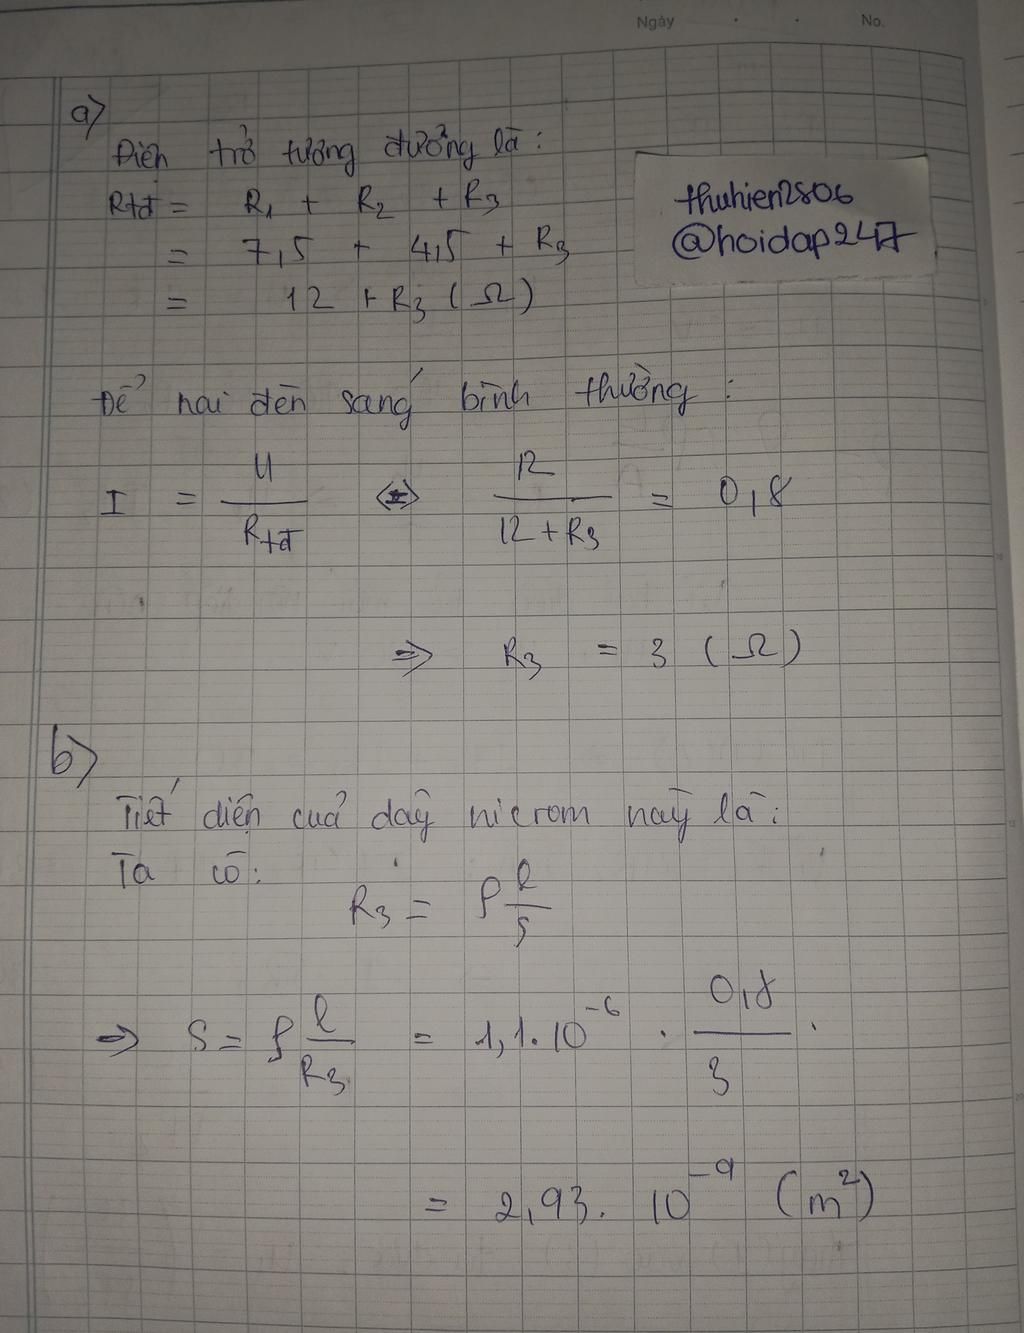 Ngày No.
a)
Điện trở tương đương là:
Rtđ = R1 + R2 + R3
= 7,5 + 4,5 + R3
= 12 + R3 (Ω)
thuhien2806
@hoidap247
Để hai đèn sáng bình thường:
I = U/Rtđ <=> 12/(12 + R3) = 0,8
=> R3 = 3 (Ω)
b)
Tiết diện của dây nicrom này là:
Ta có:
R3 = ρ l/S
=> S = ρ l/R3 = 1,1.10^-6 . 0,8/3 .
= 2,93. 10^-9 (m²)